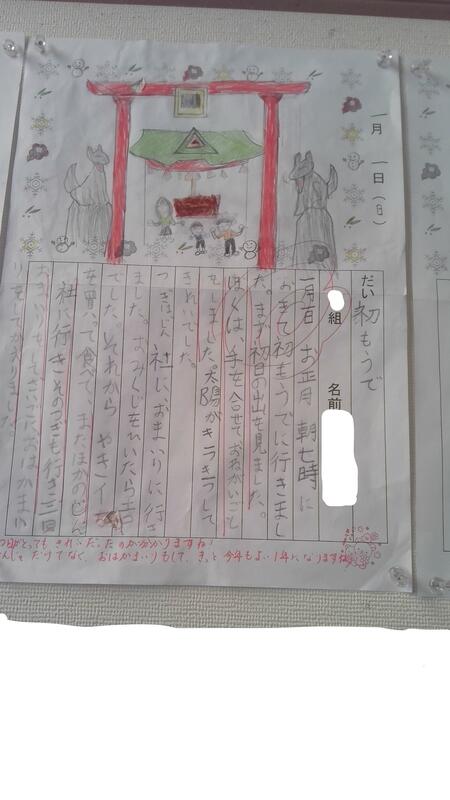 一月 一日(日)
だい 初もうで
組 名前
一月一日 お正月 朝七時に
おきて初もうでに行きまし
た。まず初日の出を見ました。
ぼくは、手を合せておねがいごと
をしました。太陽がキラキラして
きれいでした。
つぎは、じん社に、おまいりに行き
ました。おみくじをひいたら吉
でした。それから やきイ
を買って食べて、またほかのじん
社に行きそのつぎも行き三回
おまいりをしてさいごにおはかまい
りをしてかえりました。
日がとっても きれいだったのが分かりますね
んじゃだけでなく、おはかまいりもして、きっと今年もよい1年になりますね